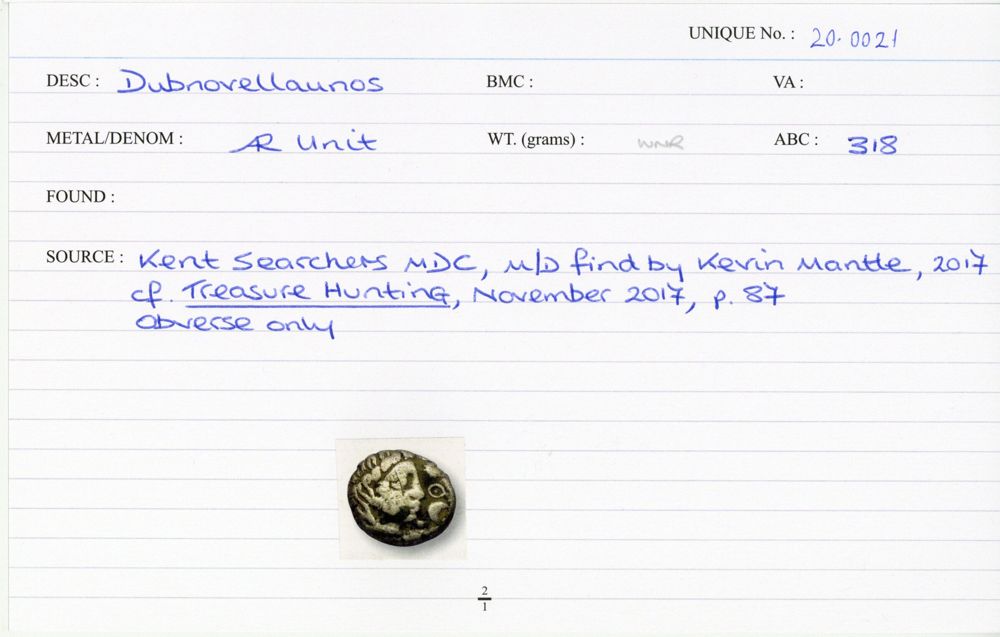 UNIQUE No. : 20.0021
DESC : Dubnovellaunos BMC : VA :
METAL/DENOM : AR Unit WT. (grams) : WNR ABC : 318
FOUND :
SOURCE : Kent Searchers MDC, M/D find by Kevin Mantle, 2017
cf. Treasure Hunting, November 2017, p. 87
obverse only
2
1